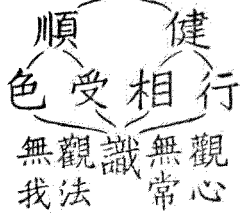 順 健
色 受 相 行
無我 觀法 識 無常 觀心